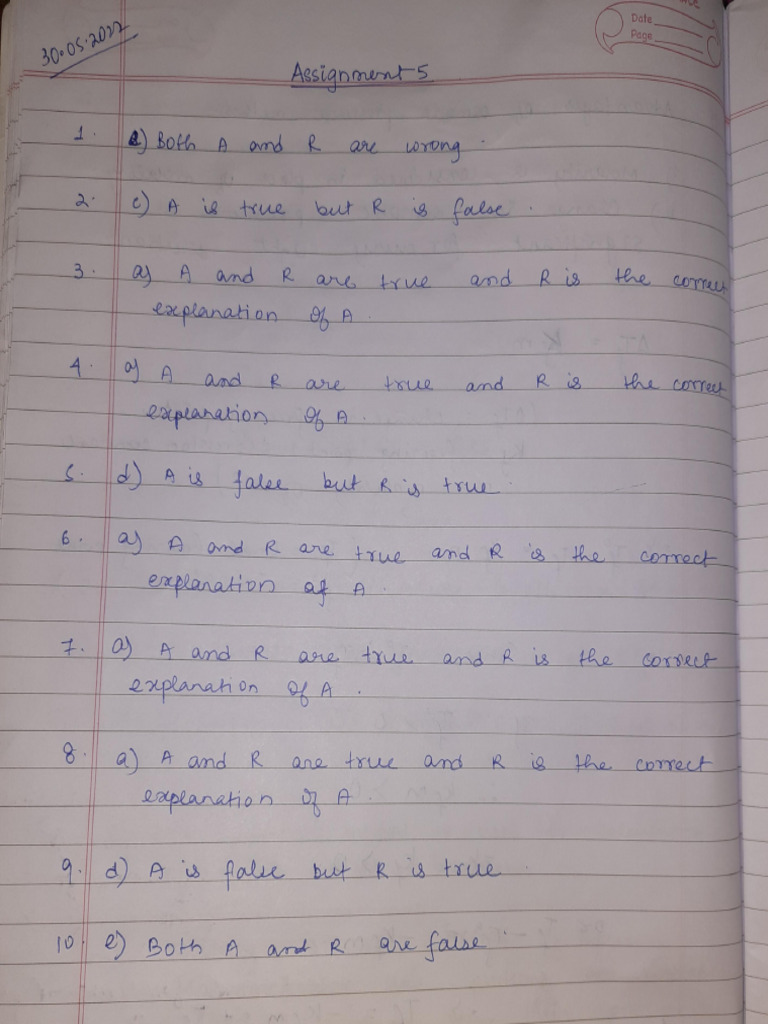 30.05.2022
Date
Page
Assignment 5
1. e) Both A and R are wrong.
2. c) A is true but R is false.
3. a) A and R are true and R is the correct
explanation of A.
4. a) A and R are true and R is the correct
explanation of A.
5. d) A is false but R is true.
6. a) A and R are true and R is the correct
explanation of A.
7. a) A and R are true and R is the correct
explanation of A.
8. a) A and R are true and R is the correct
explanation of A.
9. d) A is false but R is true.
10. e) Both A and R are false.